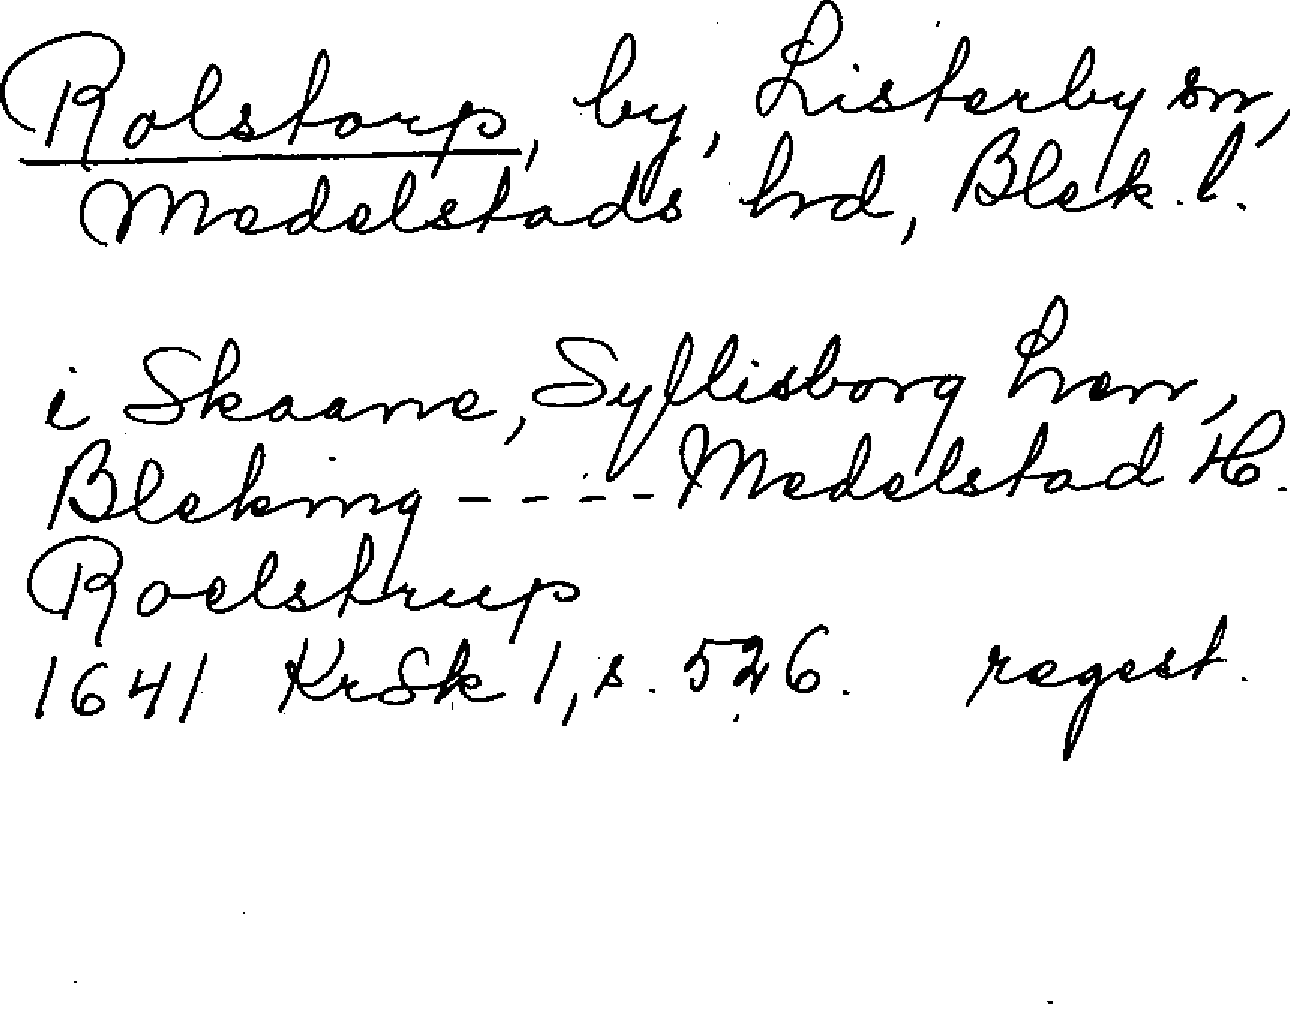 Rolstorp, by, Listerby sn,
Medelstads hrd, Blek. l.
i Skaane, Syllisborg Len,
Bleking - - - - Medelstad H.
Roelstrup
1641 KrSk 1, s. 526. regest.